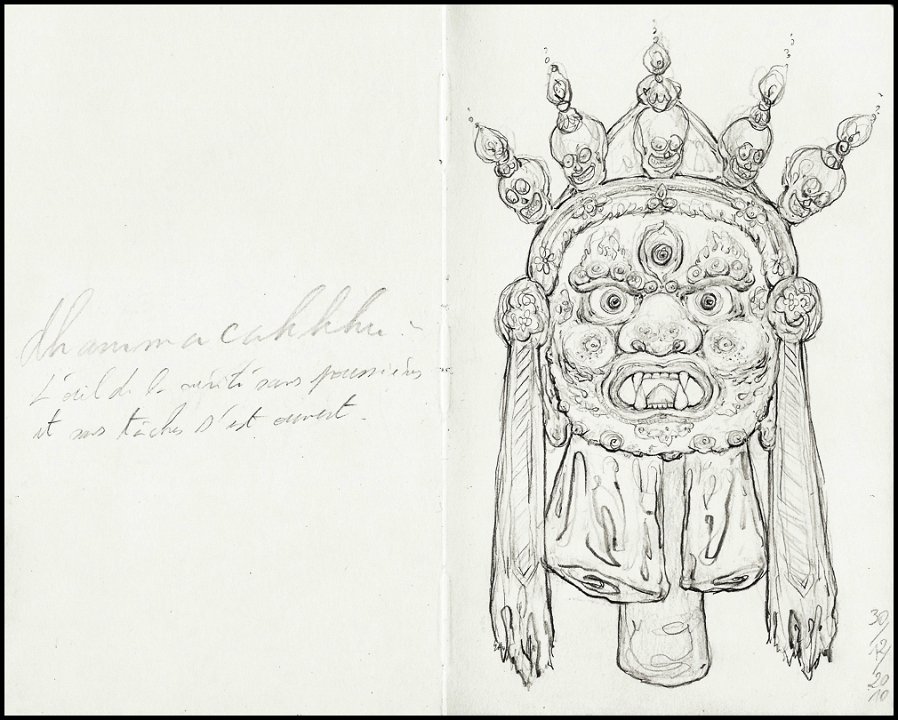 dhammacakkhu :
L'œil de la vérité sans poussières
et sans tâches s'est ouvert.
30/
12/
20
10